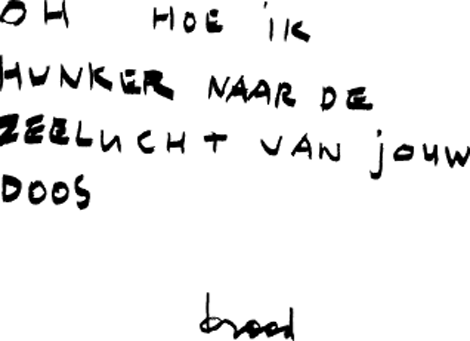 OH HOE IK
HUNKER NAAR DE
ZEELUCHT VAN jOUW
DOOS
brood